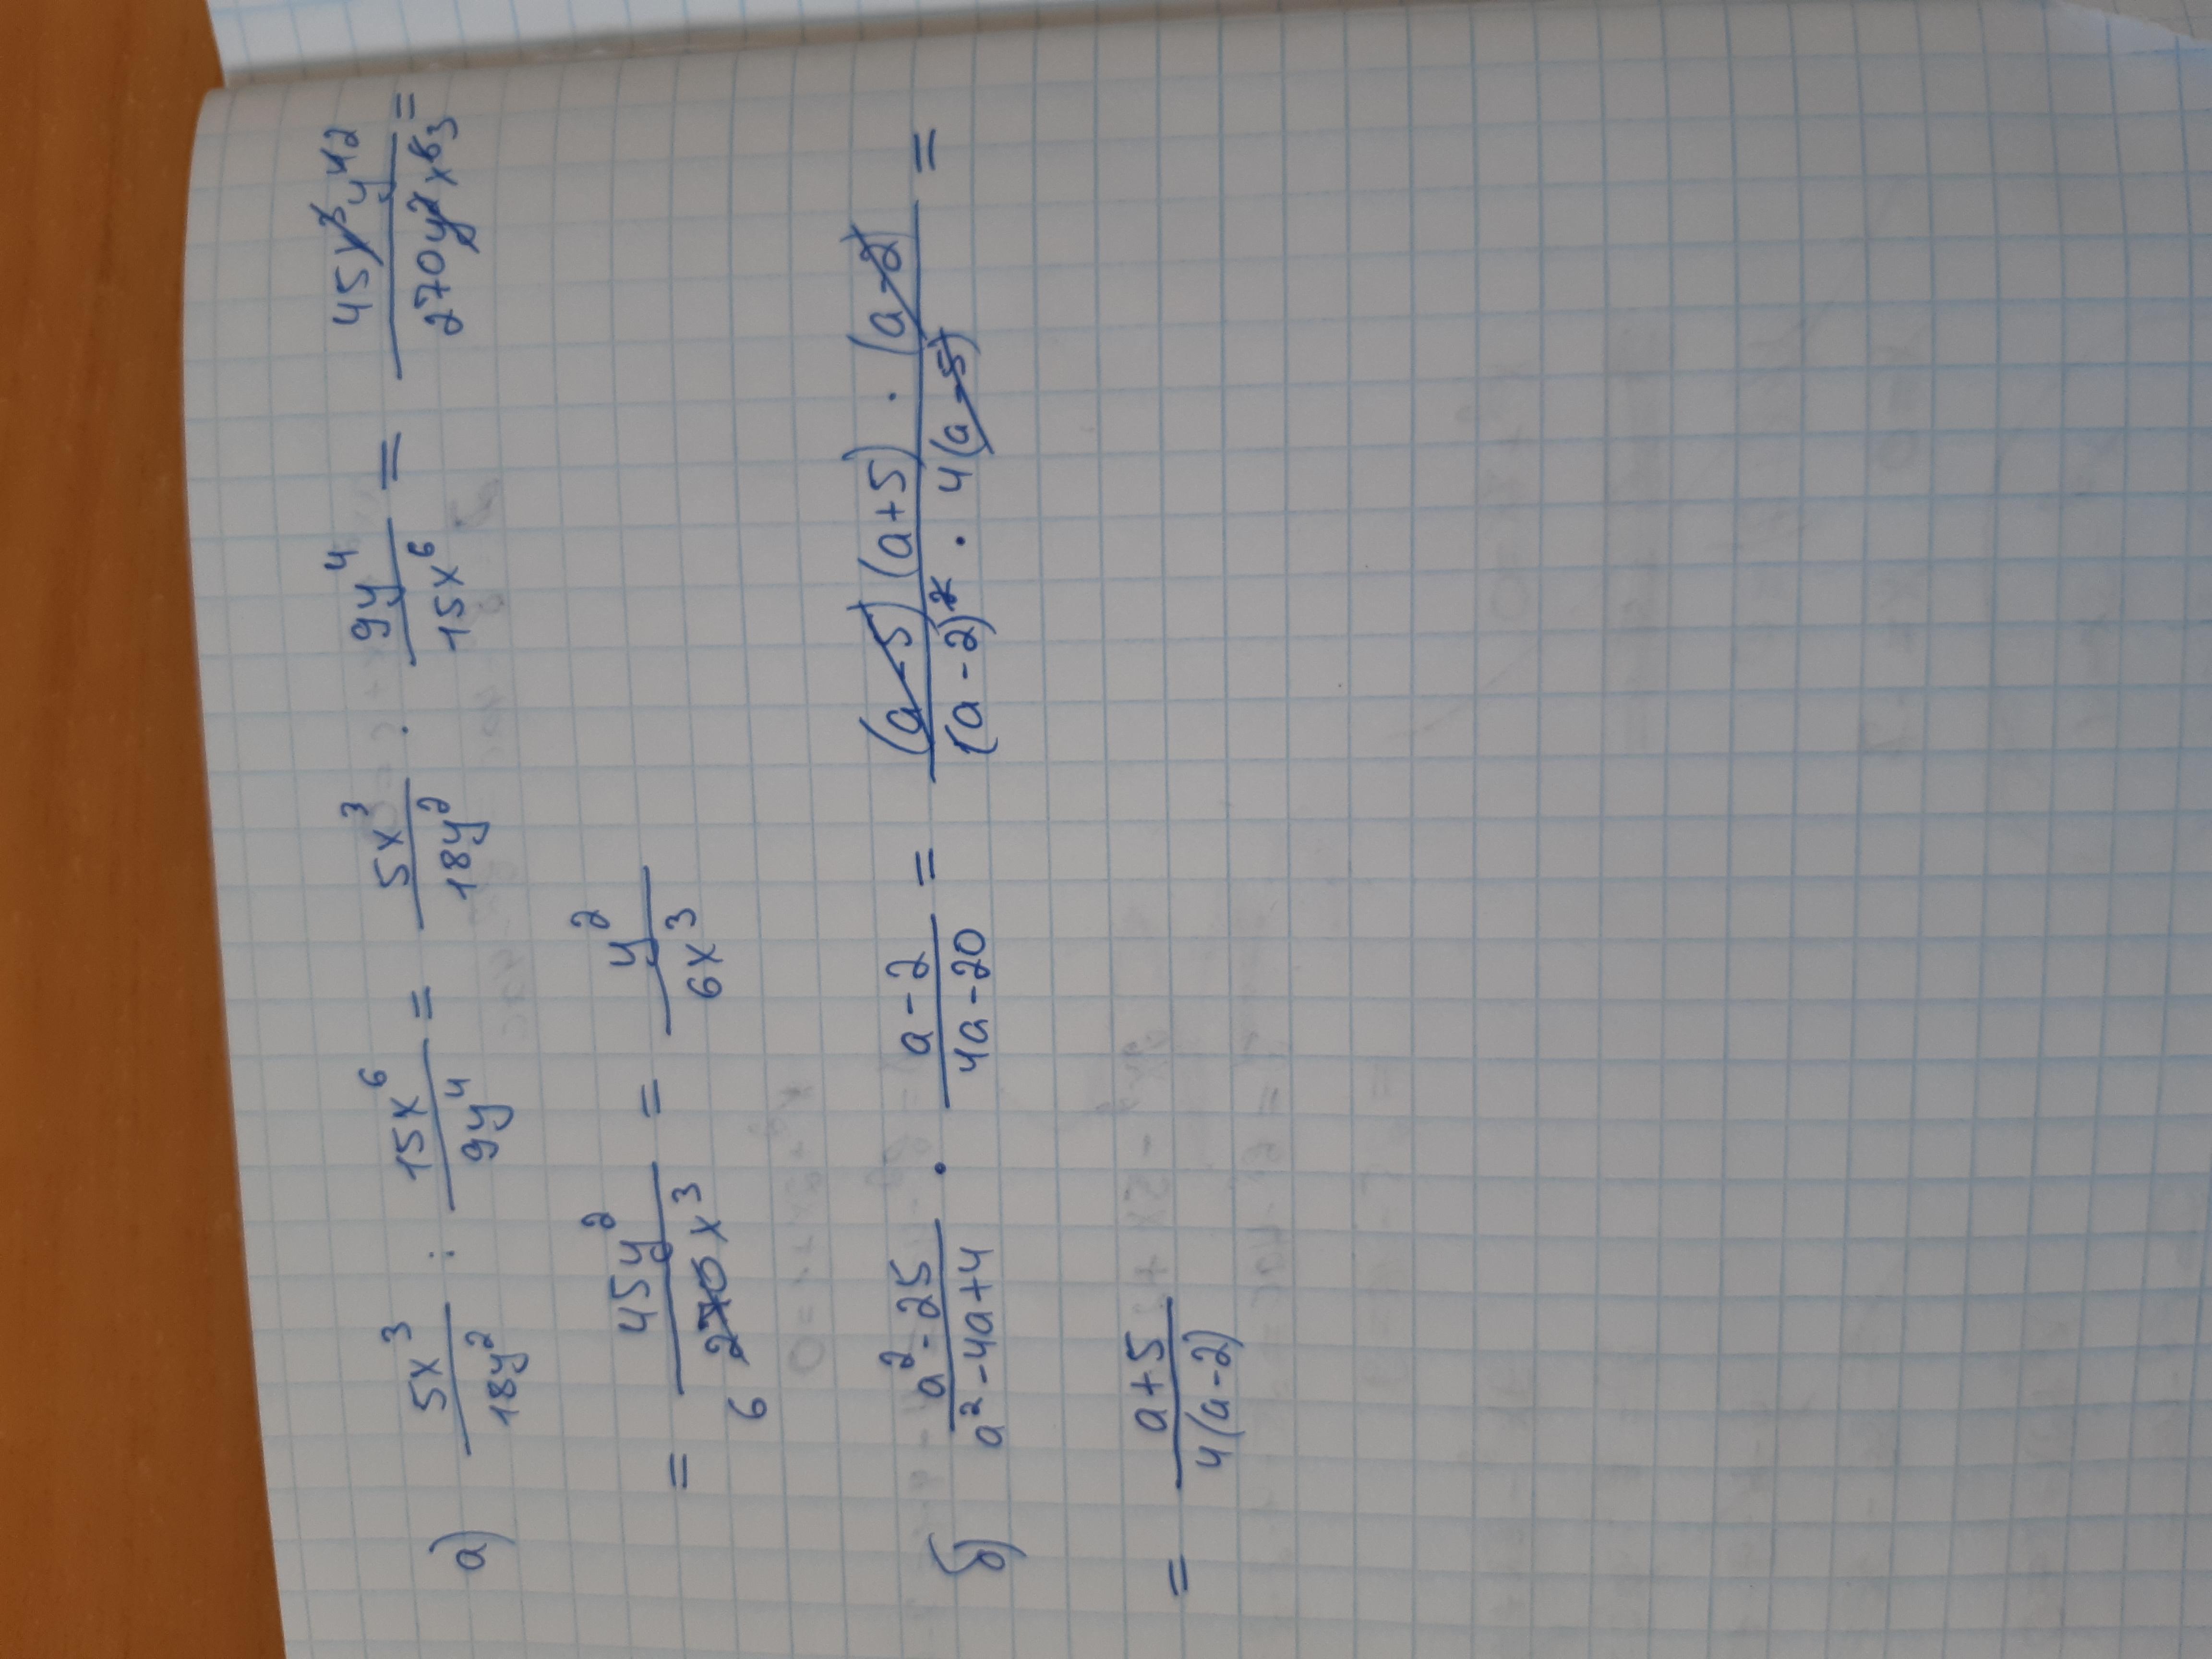 а) 5x³/18y² : 15x⁶/9y⁴ = 5x³/18y² · 9y⁴/15x⁶ = 45x³y⁴²/270y²x⁶³ =
= 45y²/6 270x³ = y²/6x³
б) a²-25/a²-4a+4 · a-2/4a-20 = (a-5)(a+5) · (a-2)/(a-2)² · 4(a-5) =
= a+5/4(a-2)